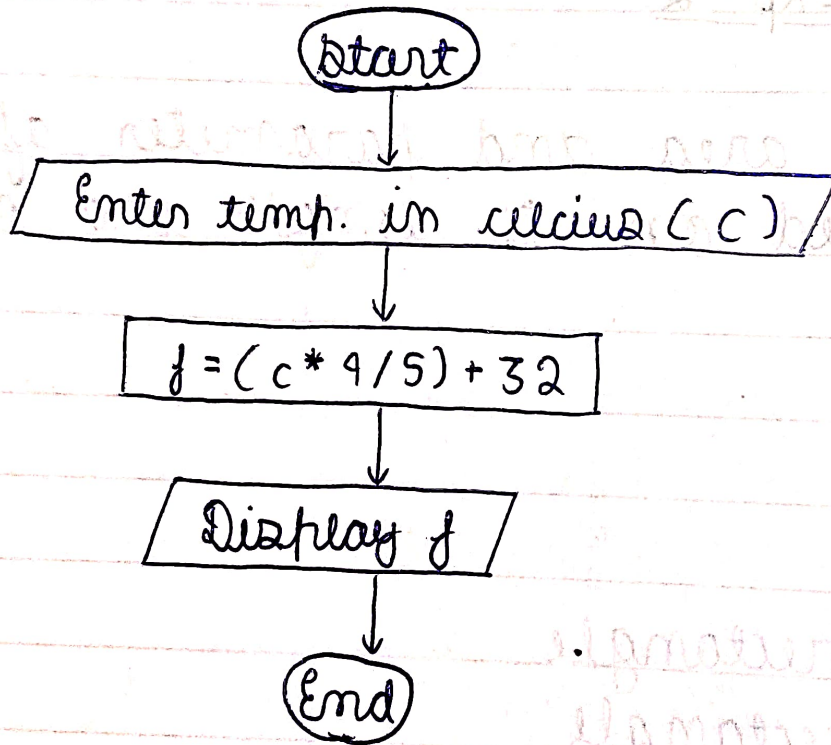 Start
Enter temp. in celcius (C)
f = (c * 9/5) + 32
Display f
End